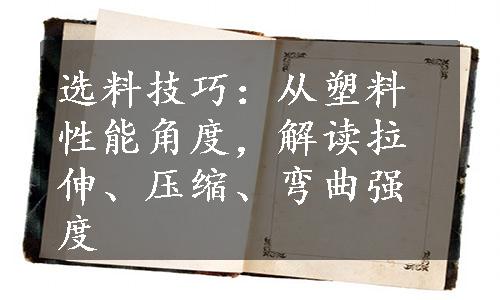 选料技巧：从塑料
性能角度，解读拉
伸、压缩、弯曲强
度